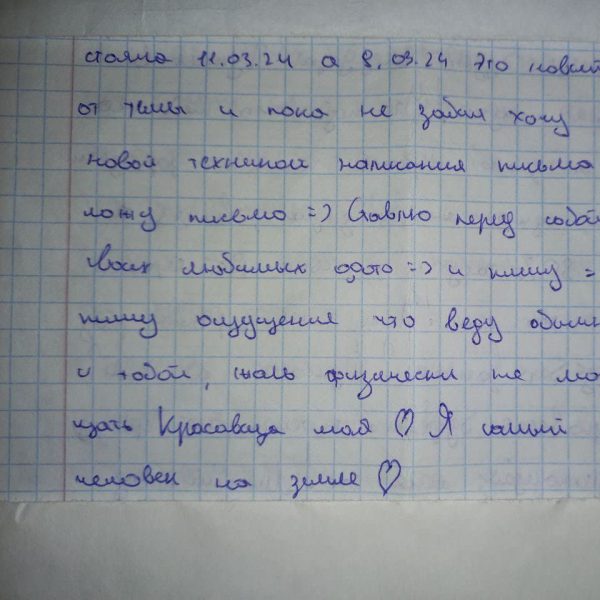 стояла 11.03.24 а 8.03.24 Это новый
от темы и пока не забыл хочу
новой техникой написания письма
ложу письмо =) Ставлю перед собой
твоих любимых фото =) и пишу =
пишу ощущение что веду
с тобой, жаль физически не мо
щать Красавица моя ♡ Я самый
человек на земле ♡